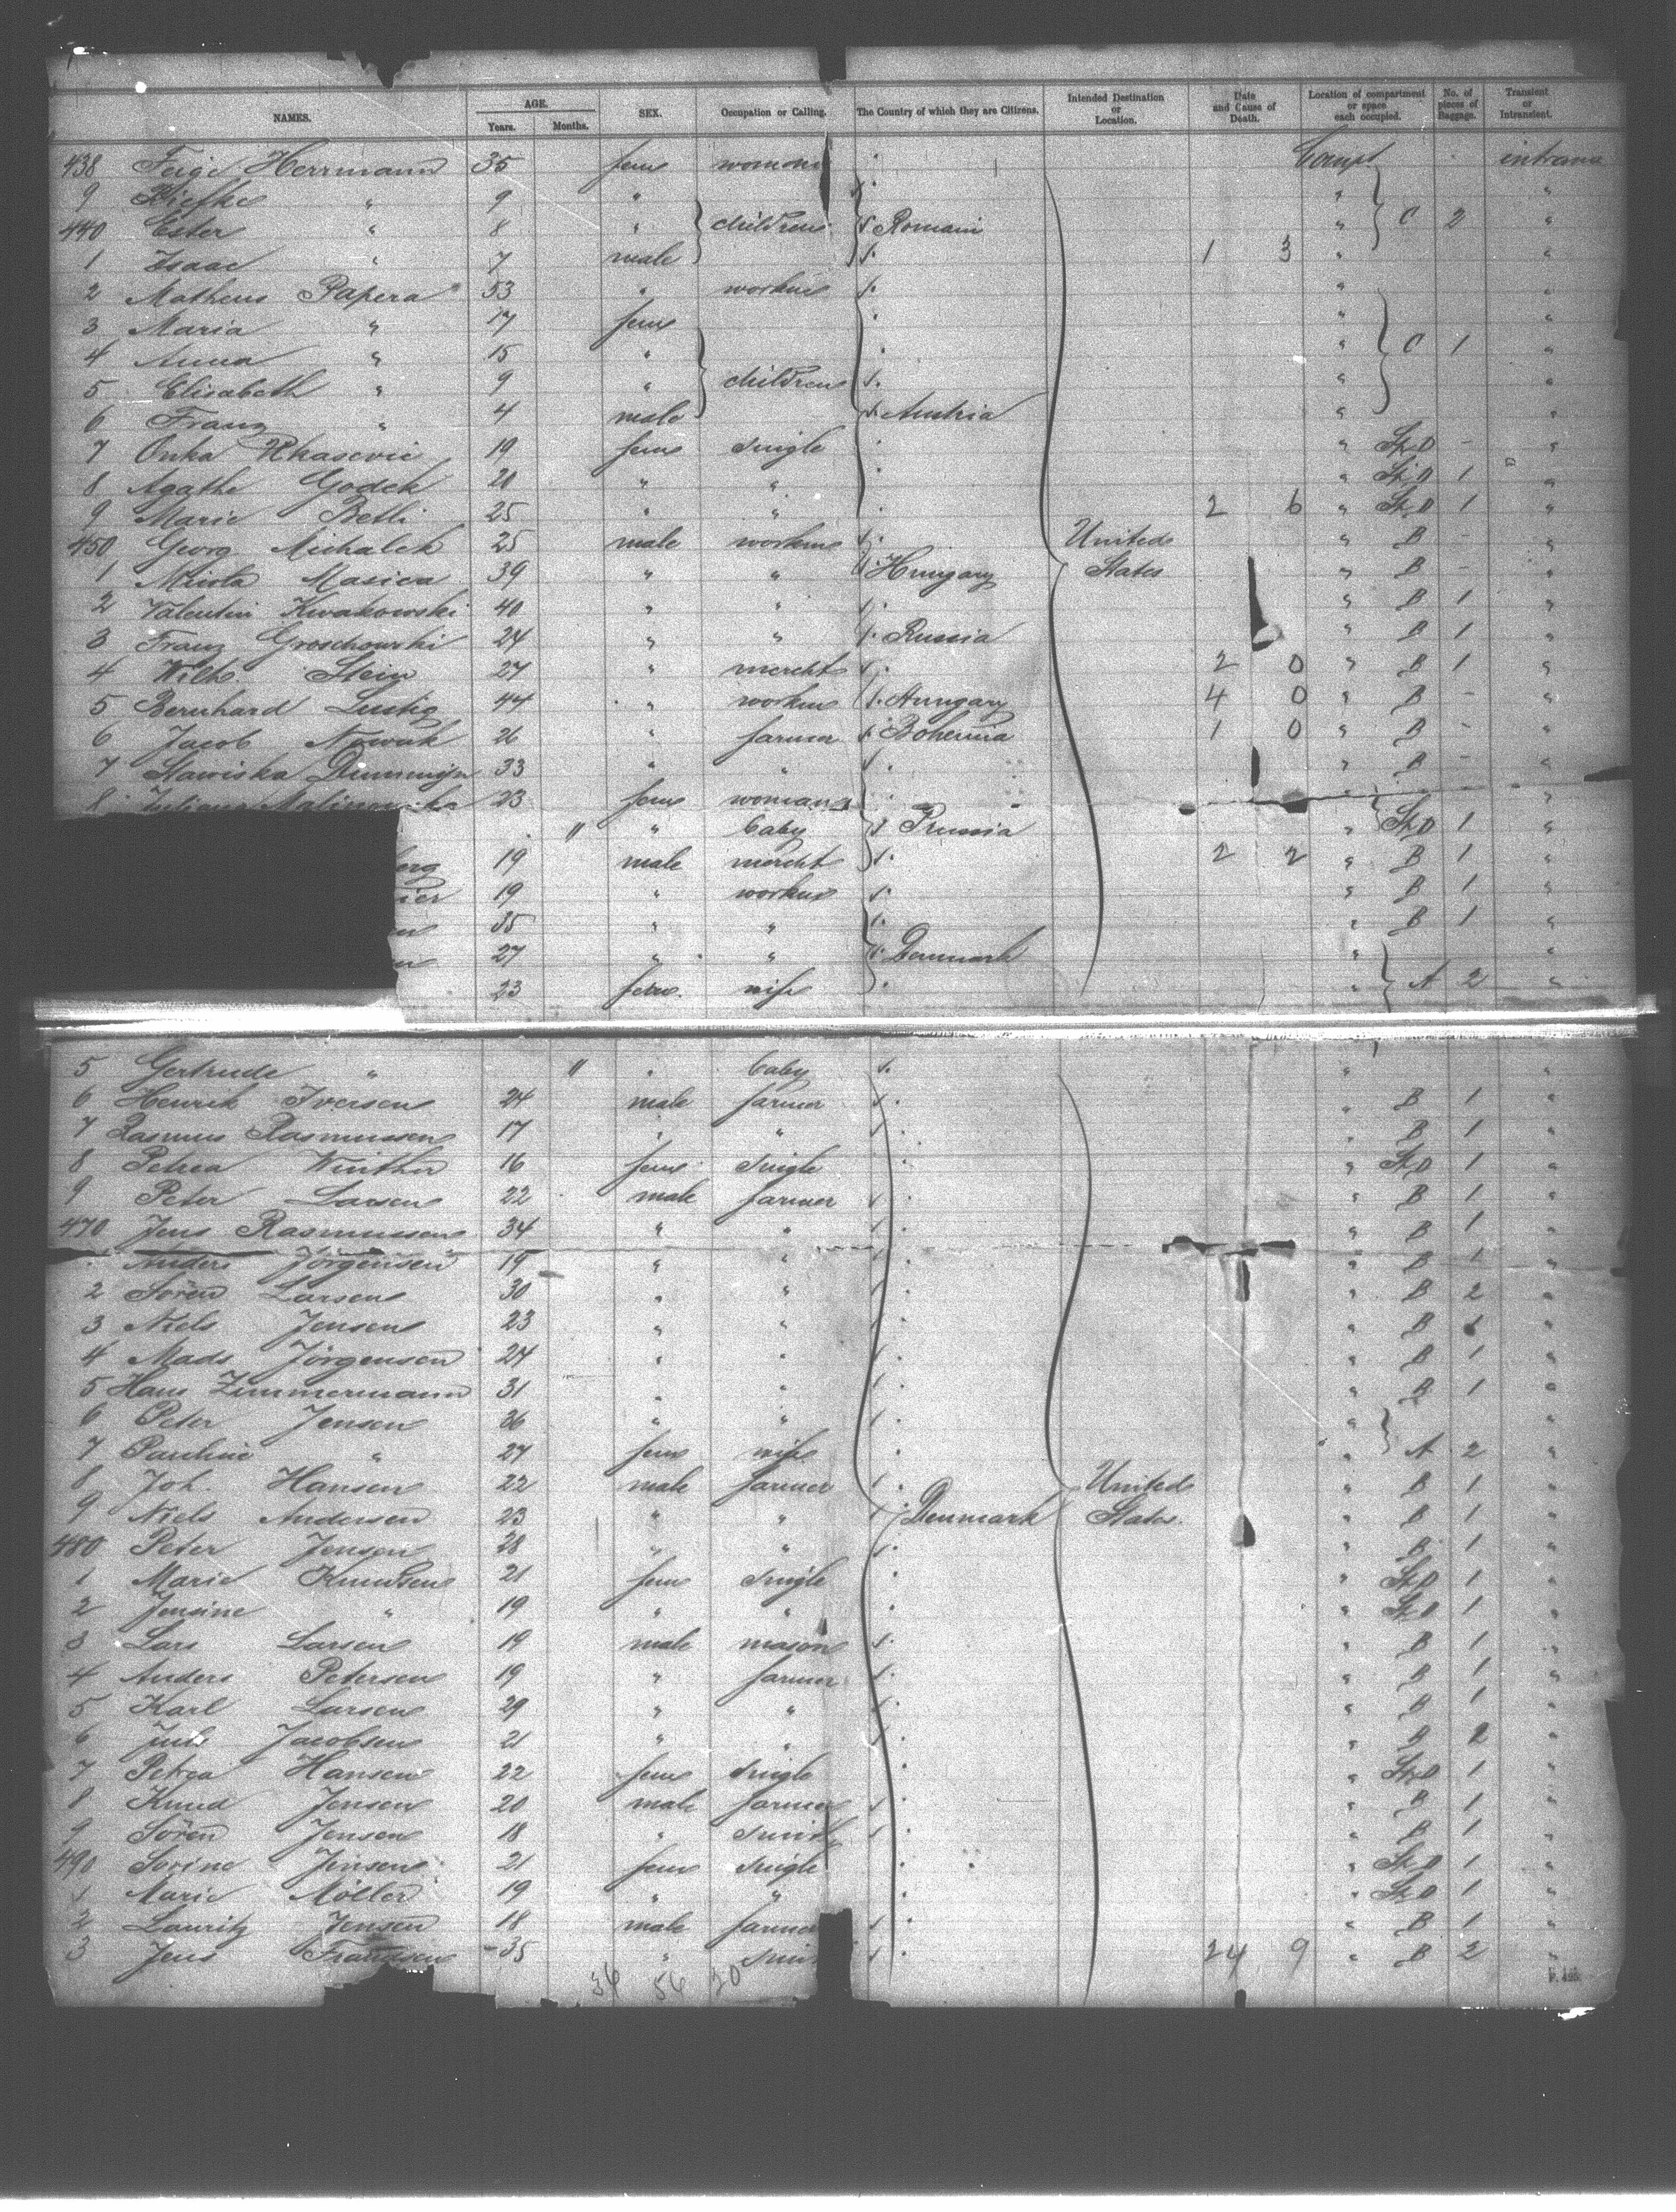 NAMES. AGE. Years. Months. SEX. Occupation or Calling. The Country of which they are Citizens. Intended Destination or Location. Date and Cause of Death. Location of compartment or space each occupied. No. of pieces of Baggage. Transient or Intransient.
438 Feige Herrmann 35 fem woman Compt
9 " 9 " " "
440 Ester " 8 " children Romani " C 2 "
1 Isaac " 7 male 1 3 " "
2 Matheus Papera 53 " " "
3 Maria " 17 fem " "
4 Anna " 15 " " C 1 "
5 Elisabeth " 9 " children " "
6 Franz " 4 male Austria " "
7 19 fem single " St D - "
8 Agathe Godek 20 " " " St D 1 "
9 Marie Betli 25 " " 2 6 " St D 1 "
450 Georg Michalek 25 male United " B - "
1 Masica 39 " " Hungary States " B - "
2 Valentin Kwakowski 40 " " " B 1 "
3 Franz 24 " " Russia " B 1 "
4 Wilh. Stein 27 " mercht 2 0 " B 1 "
5 Bernhard Lustig 44 " Hungary 4 0 " B - "
6 Jacob Nowak 26 " farmer Bohemia 1 0 " B - "
7 33 " " " B - "
8 23 fem woman "
11 " baby Prussia " St D 1 "
19 male mercht 2 2 " B 1 "
19 " " B 1 "
35 " " " B 1 "
27 " " Denmark " "
23 fem. wife " A 2 "
5 Gertrude " 11 " baby " "
6 Henrik Iversen 24 male farmer " B 1 "
7 Rasmus Rasmussen 17 " " " B 1 "
8 Petrea Winther 16 fem single " St D 1 "
9 Peter Larsen 22 male farmer " B 1 "
470 Jens Rasmussen 34 " " " B 1 "
Anders Jörgensen 19 " " " B 1 "
2 Sören Larsen 30 " " " B 2 "
3 Niels Jensen 23 " " " B "
4 Mads Jörgensen 24 " " " B 1 "
5 Hans Zimmermann 31 " " " B 1 "
6 Peter Jensen 36 " " " "
7 Pauline " 27 fem wife " A 2 "
8 Joh. Hansen 22 male farmer United " B 1 "
9 Niels Andersen 23 " " Denmark States. " B 1 "
480 Peter Jensen 28 " " " B 1 "
1 Marie Knudsen 21 fem single " St D 1 "
2 Jensine " 19 " " " St D 1 "
3 Lars Larsen 19 male mason " B 1 "
4 Anders Petersen 19 " farmer " B 1 "
5 Karl Larsen 29 " " " B 1 "
6 Jacobsen 21 " " " B 2 "
7 Petrea Hansen 22 fem single " St D 1 "
8 Knud Jensen 20 male farmer " B 1 "
9 Sören Jensen 18 " smith " B 1 "
490 Sorine Jensen 21 fem single " St D 1 "
1 Marie Möller 19 " " " St D 1 "
2 Lauritz Jensen 18 male farmer " B 1 "
3 Jens Frandsen 35 " 24 9 " B 2 "
34 56 20